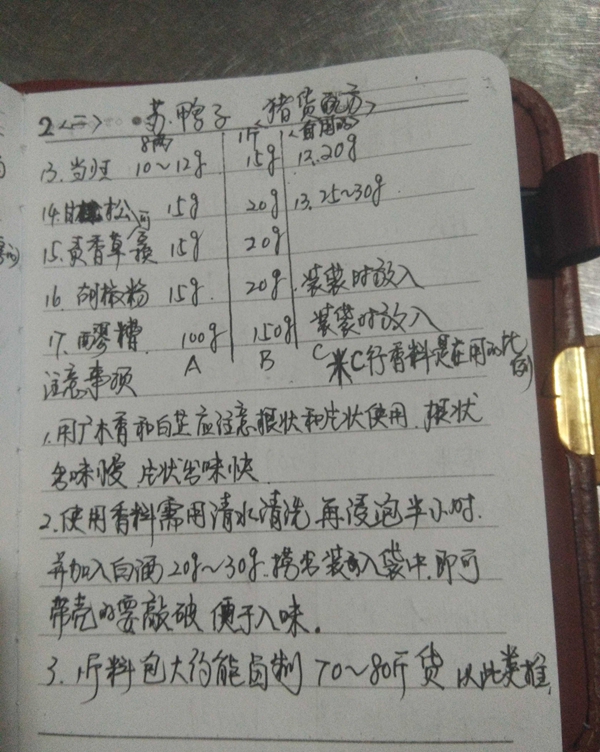 2<二> 苏.鸭子 <猪货配方>
8两 1斤 <自用的>
13.当归 10~12g 15g 12.20g
14.甘松 可 15g 20g 13.25~30g
15.黄香草 15g 20g
16.胡椒粉 15g. 20g .装袋时放入
17.醪糟. 100g 150g 装袋时放入
A B C 米C行香料是在用的比例
注意事项
1.用广木香和白芷应注意根状和片状使用.根状
出味慢 片状出味快
2.使用香料需用清水清洗 再浸泡半小时.
并加入白酒20g~30g.捞出装入袋中.即可
带壳的要敲破 便于入味。
3.1斤料包大约能卤制 70~80斤货 以此类推,